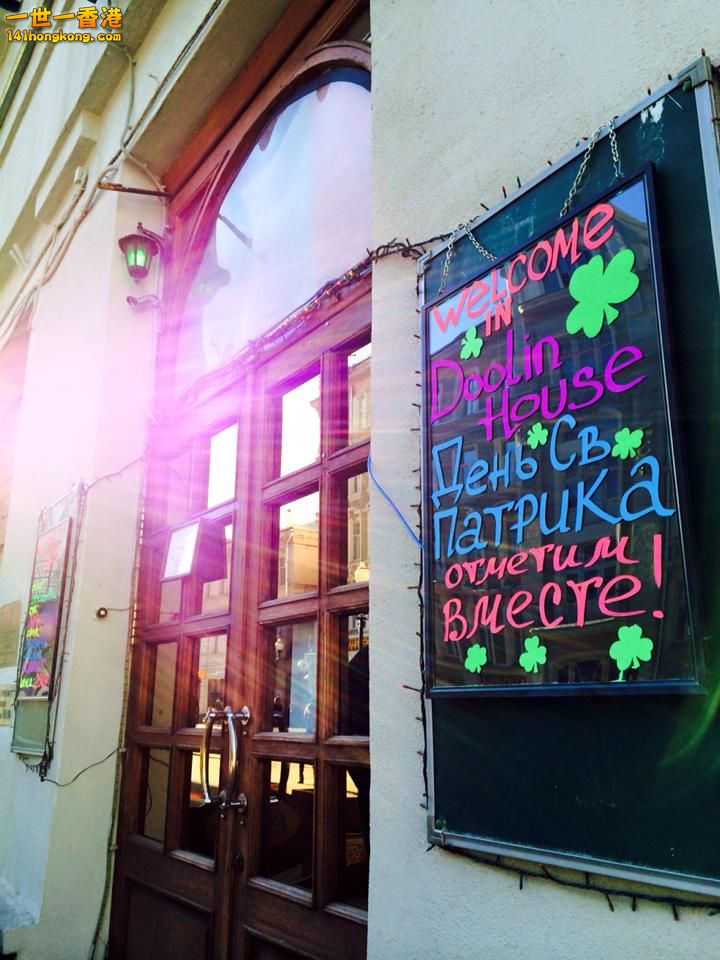 一世一香港
141hongkong.com
WELCOME
IN
Doolin
House
День Св
Патрика
отметим
вместе!